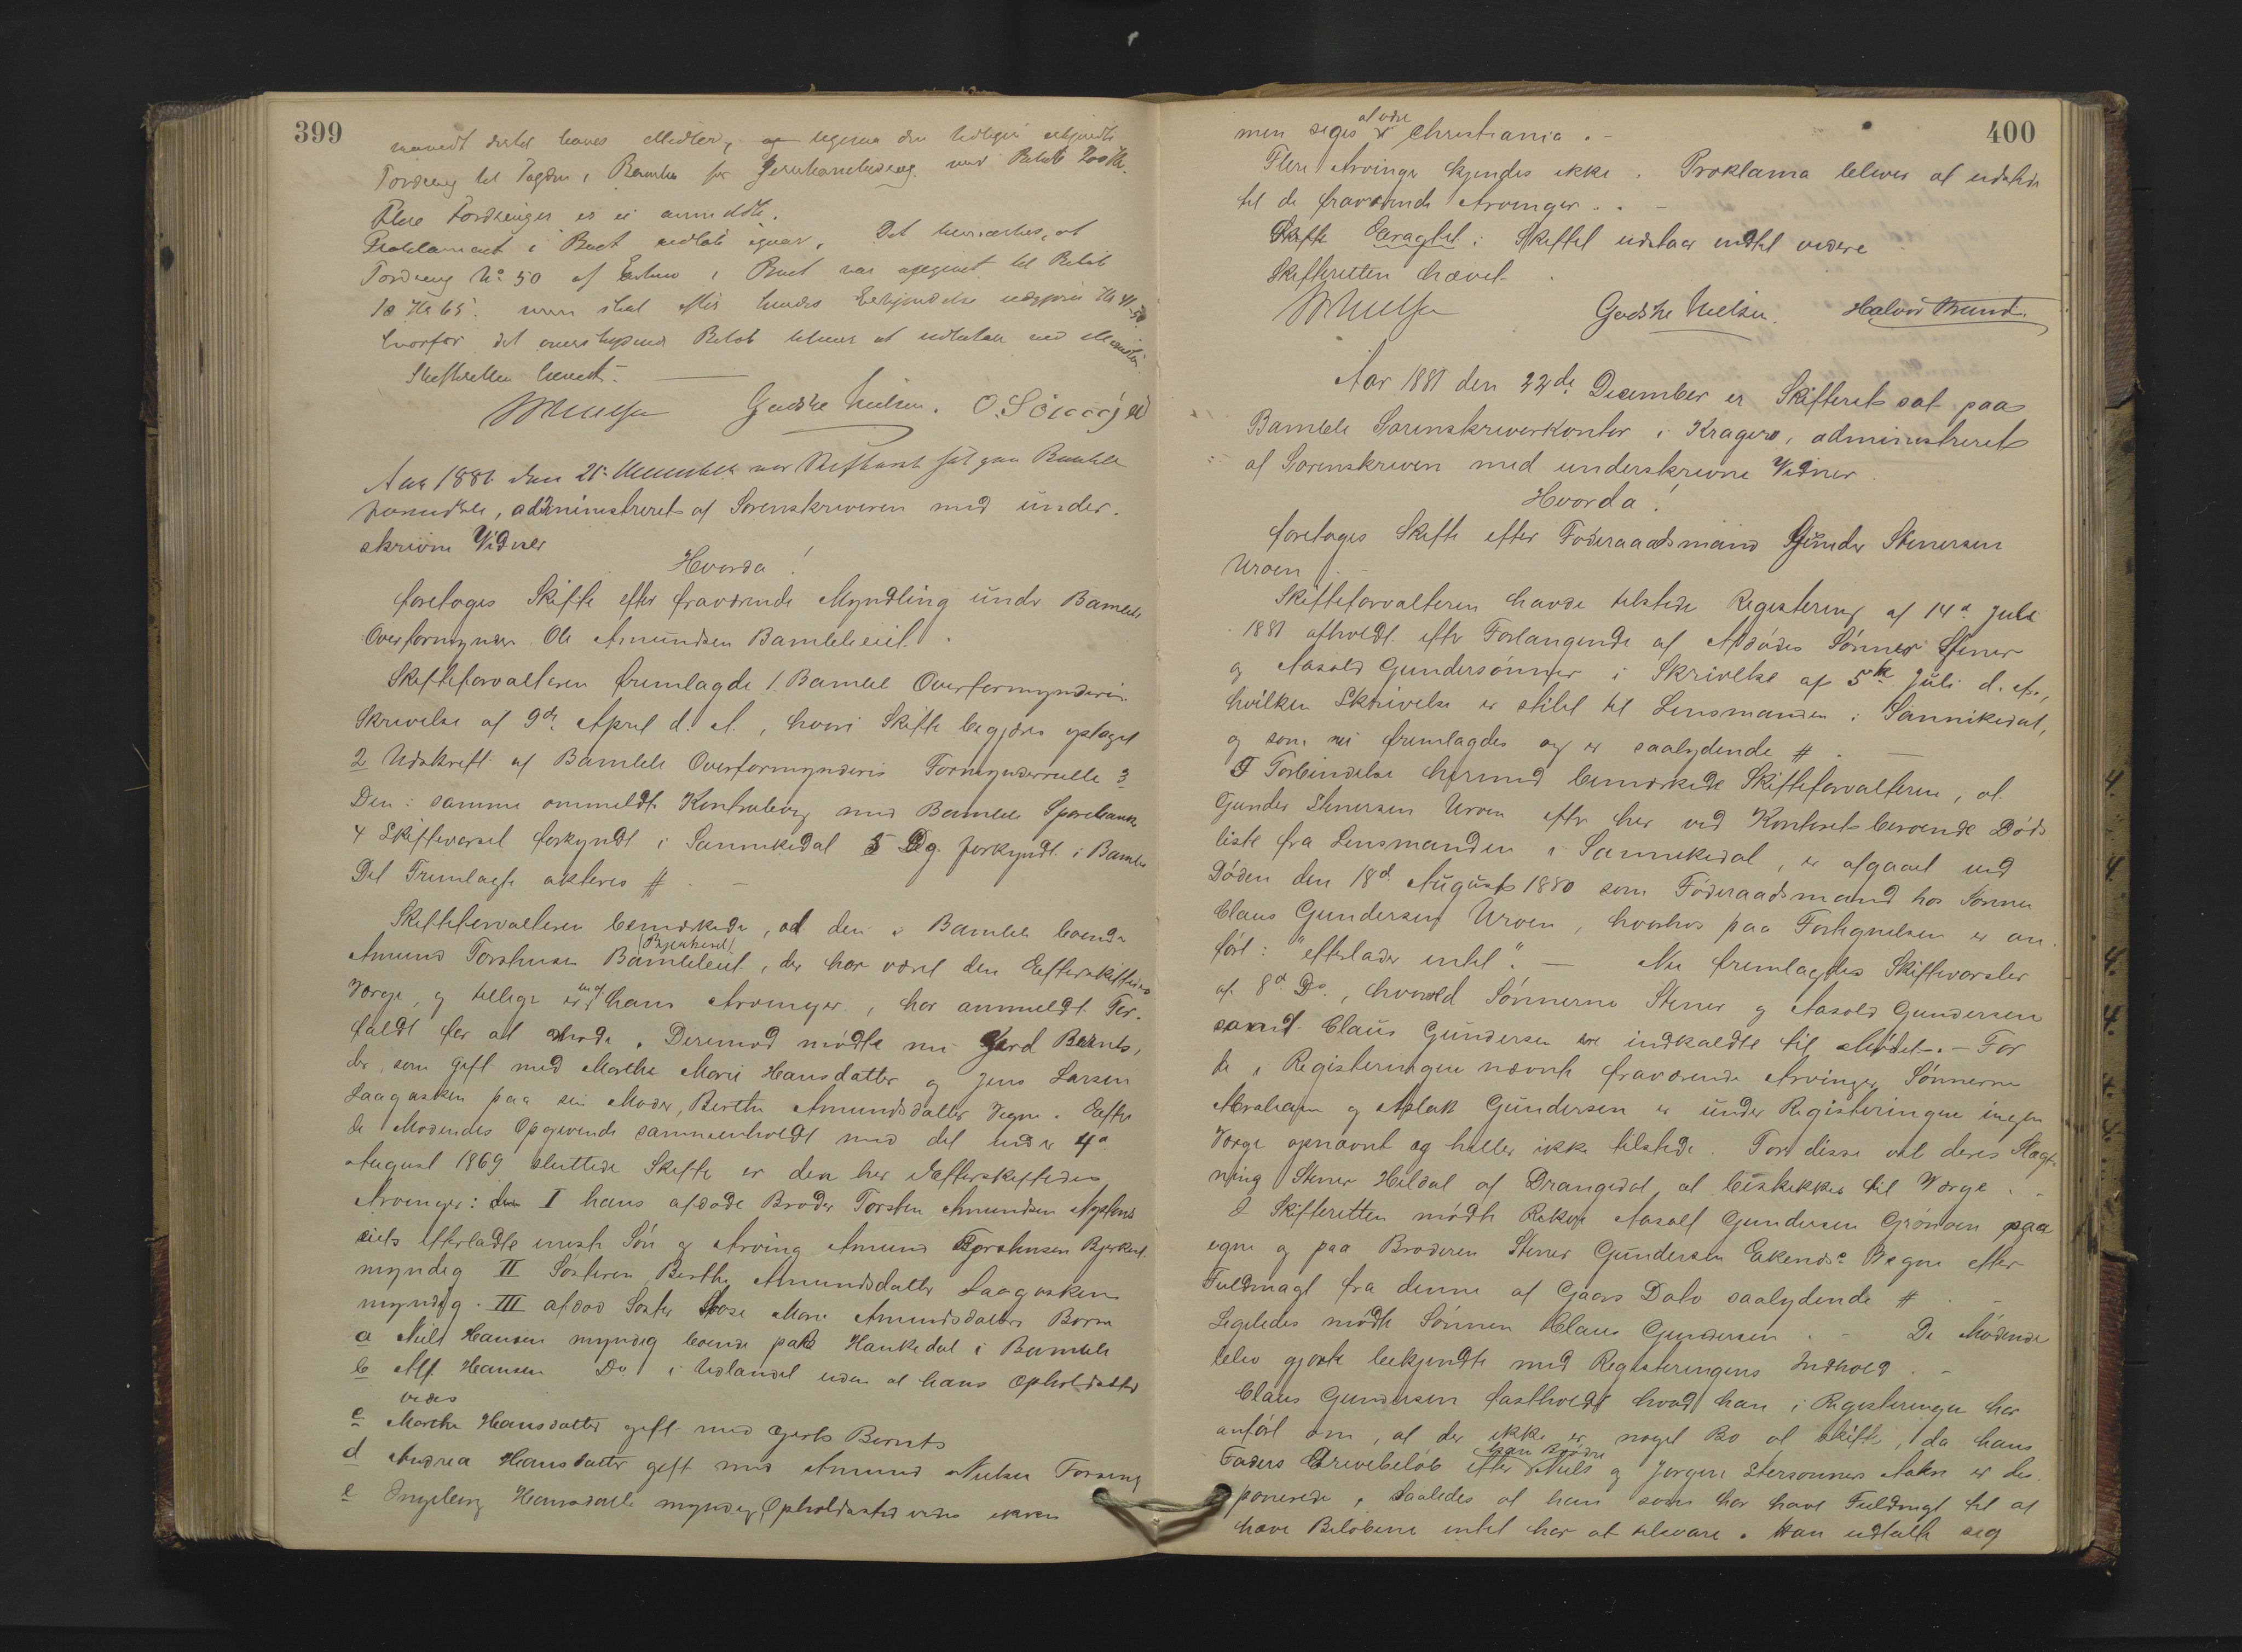 399
havedt dertil haves Midler, ligesom den
Fordring til Fogden i Bamble for med Beløb 200 Kr.
Flere Fordringer er ei anmeldte.
Proklamaet i Boet udløb igaar. Det bemærkes, at
Fordring No 50 af i Boet var opgivet til Beløb
10 Kr 65. men skal efter hendes udgjøre Kr
hvorfor det overskydende Beløb bliver at udbetale
Skifteretten hævet.
Godske Nielsen.
Aar 1881 den 21. December var Skifteret sat paa Bamble
, administreret af Sorenskriveren med under-
skrevne Vidner
Hvorda!
foretoges Skifte efter fraværende Myndling under Bamble
Overformynderi Ole Amundsen Bambleeiet.
Skifteforvalteren fremlagde 1. Bamble Overformynderis
Skrivelse af 9de April d. A., hvori Skifte begjæres optaget
2 Udskrift af Bamble Overformynderis Formynderrulle 3
Den i samme ommeldte Kontrabog med Bamble Sparebank
4 Skiftevarsel forkyndt i Sannikedal 5 Dg. forkyndt i Bamble
Det Fremlagte akteres #
Skifteforvalteren bemærkede, at den i Bamble boende
Amund Torstensen Bambleeiet (Bjerkeset), der har været den Efterskiftedes
Værge, og tillige er en af hans Arvinger, har anmeldt For-
faldt for at møde. Derimod mødte nu Gjerd Bernts,
der, som gift med Marthe Marie Hansdatter og Jens Larsen
Laagasken paa sin Moder, Berthe Amundsdatters Vegne. Efter
de Mødendes Opgivende sammenholdt med det under 4de
August 1869 sluttede Skifte er den her Efterskiftedes
Arvinger: I hans afdøde Broder Torsten Amundsen
eiets efterladte eneste Søn og Arving Amund Torstensen Bjerkeset.
myndig II Søsteren Berthe Amundsdatter Laagasken
myndig. III afdød Søster Marie Amundsdatters Børn
a Niels Hansen myndig boende paa Hankedal i Bamble
b Alf Hansen Do i Udlandet uden at hans Opholdssted
vides
c Marthe Hansdatter gift med Gjerts Bernts
d Andrea Hansdatter gift med Amund Nielsen
e Ingeborg Hansdatter myndig, Opholdssted vides ikke
400
men siges at være i Christiania.
Flere Arvinger kjendes ikke. Proklama bliver at udstede
til de fraværende Arvinger.
Eragtet: Skiftet udstaar indtil videre
Skifteretten hævet.
Godske Nielsen. Halvor
Aar 1881 den 22de December er Skifteret sat paa
Bamble Sorenskriverkontor i Kragerø, administreret
af Sorenskriveren med underskrevne Vidner.
Hvorda!
foretoges Skifte efter Føderaadsmand Gunder Stenersen
Uroen.
Skifteforvalteren havde tilstede Registrering af 14de Juli
1881 afholdt efter Forlangende af Afdødes Sønner Stener
og Aasold Gundersønner i Skrivelse af 5te Juli d. A.,
hvilken Skrivelse er stilet til Lensmanden i Sannikedal,
og som nu fremlagdes og er saalydende #
I Forbindelse hermed bemærkede Skifteforvalteren, at
Gunder Stenersen Uroen efter her ved Kontoret beroende Døds
liste fra Lensmanden i Sannikedal, er afgaaet ved
Døden den 18de August 1880 som Føderaadsmand hos Sønnen
Claus Gundersen Uroen, hvorhos paa Fortegnelsen er an-
ført: "efterlader intet". Nu fremlagdes Skiftevarsler
af 8de Ds., hvorved Sønnerne Stener og Aasold Gundersen
samt Claus Gundersen ere indkaldte til Mødet. – For
de i Registeringen nævnte fraværende Arvinger, Sønnerne
Abraham og Aslak Gundersen er under Registeringen ingen
Værge opnævnt og heller ikke tilstede. For disse vil deres Slægt-
ning Stener Heldal af Drangedal at beskikkes til Værge.
I Skifteretten mødte Aasold Gundersen Grønåen paa
egne og paa Broderen Stener Gundersen Vegne efter
Fuldmagt fra denne af Gaars Dato saalydende #
Ligeledes mødte Sønnen Claus Gundersen. De Mødende
blev gjorte bekjendte med Registeringens Indhold.
Claus Gundersen fastholdt hvad han i Registeringen har
anført om, at der ikke er noget Bo at skifte, da hans
Faders Arvebeløb efter hans Brødre Niels og Jørgen Stenersønner er de-
ponerede, saaledes at han som har havt Fuldmagt til at
hæve Beløbene intet har at tilsvare. Han udtalte sig